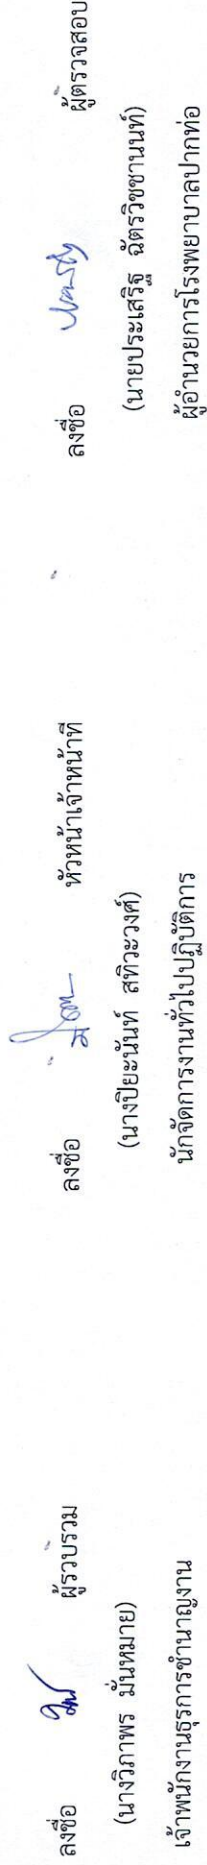 ลงชื่อ ผู้รวบรวม
(นางวิภาพร มั่นหมาย)
เจ้าพนักงานธุรการชำนาญงาน
ลงชื่อ หัวหน้าเจ้าหน้าที่
(นางปิยะนันท์ สทิวะวงศ์)
นักจัดการงานทั่วไปปฏิบัติการ
ลงชื่อ ผู้ตรวจสอบ
(นายประเสริฐ ฉัตรวิชชานนท์)
ผู้อำนวยการโรงพยาบาลปากท่อ